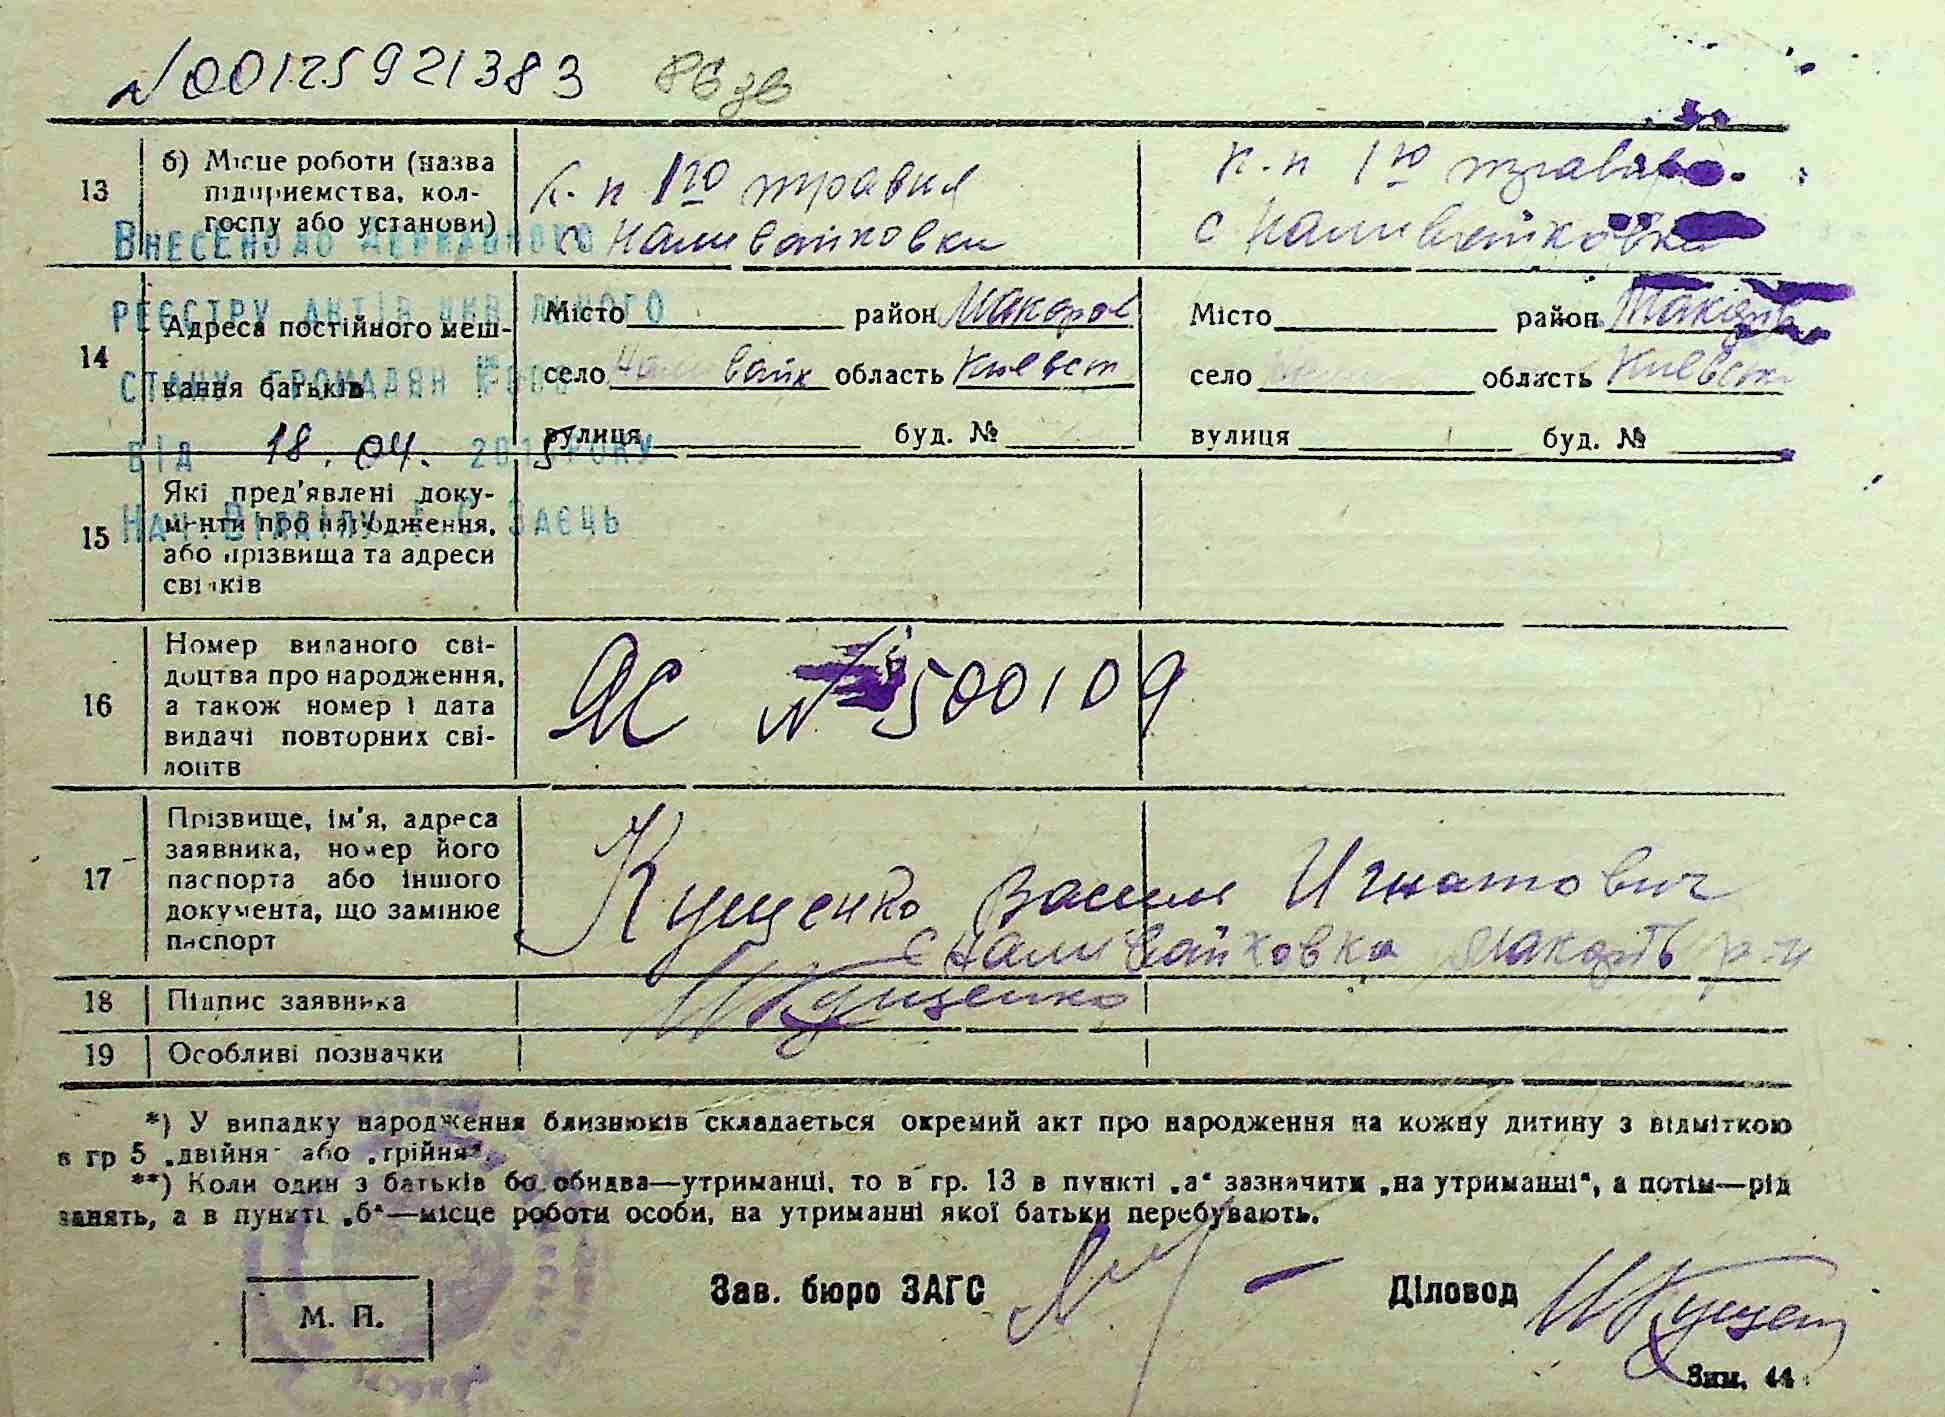 N00125921383
13
б) Місце роботи (назва
підприємства, кол-
госпу або установи)
к-п 1го травня
с Наливайковки
к-п 1го травня
с Наливайковка
Внесено до Державного
реєстру актів цивільного
стану громадян
від 18.04. 2015 року
Нач. Відділу Заєць
14
Адреса постійного меш-
кання батьків
Місто район Макаров
село Наливайк область Київст
вулиця буд. №
Місто район Макарів
село область Київст
вулиця буд. №
15
Які пред'явлені доку-
менти про народження,
або прізвища та адреси
свідків
16
Номер виданого сві-
доцтва про народження,
а також номер і дата
видачі повторних сві-
доцтв
ЯС N 500109
17
Прізвище, ім'я, адреса
заявника, номер його
паспорта або іншого
документа, що замінює
паспорт
Кущенко Василь Игнатович
с Наливайковка Макарів р-н
18 Підпис заявника
Кущенко
19 Особливі позначки
*) У випадку народження близнюків складається окремий акт про народження на кожну дитину з відміткою
в гр 5 „двійня" або „трійня".
**) Коли один з батьків або обидва—утриманці, то в гр. 13 в пункті „а" зазначити „на утриманні", а потім—рід
занять, а в пункті „б"—місце роботи особи, на утриманні якої батьки перебувають.
М. П.
Зав. бюро ЗАГС
Діловод
Зам. 44